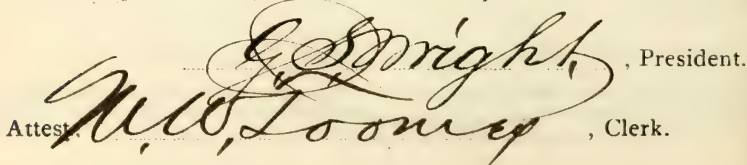 G. S. Wright, , President.
Attest: W. W. Looney , Clerk.